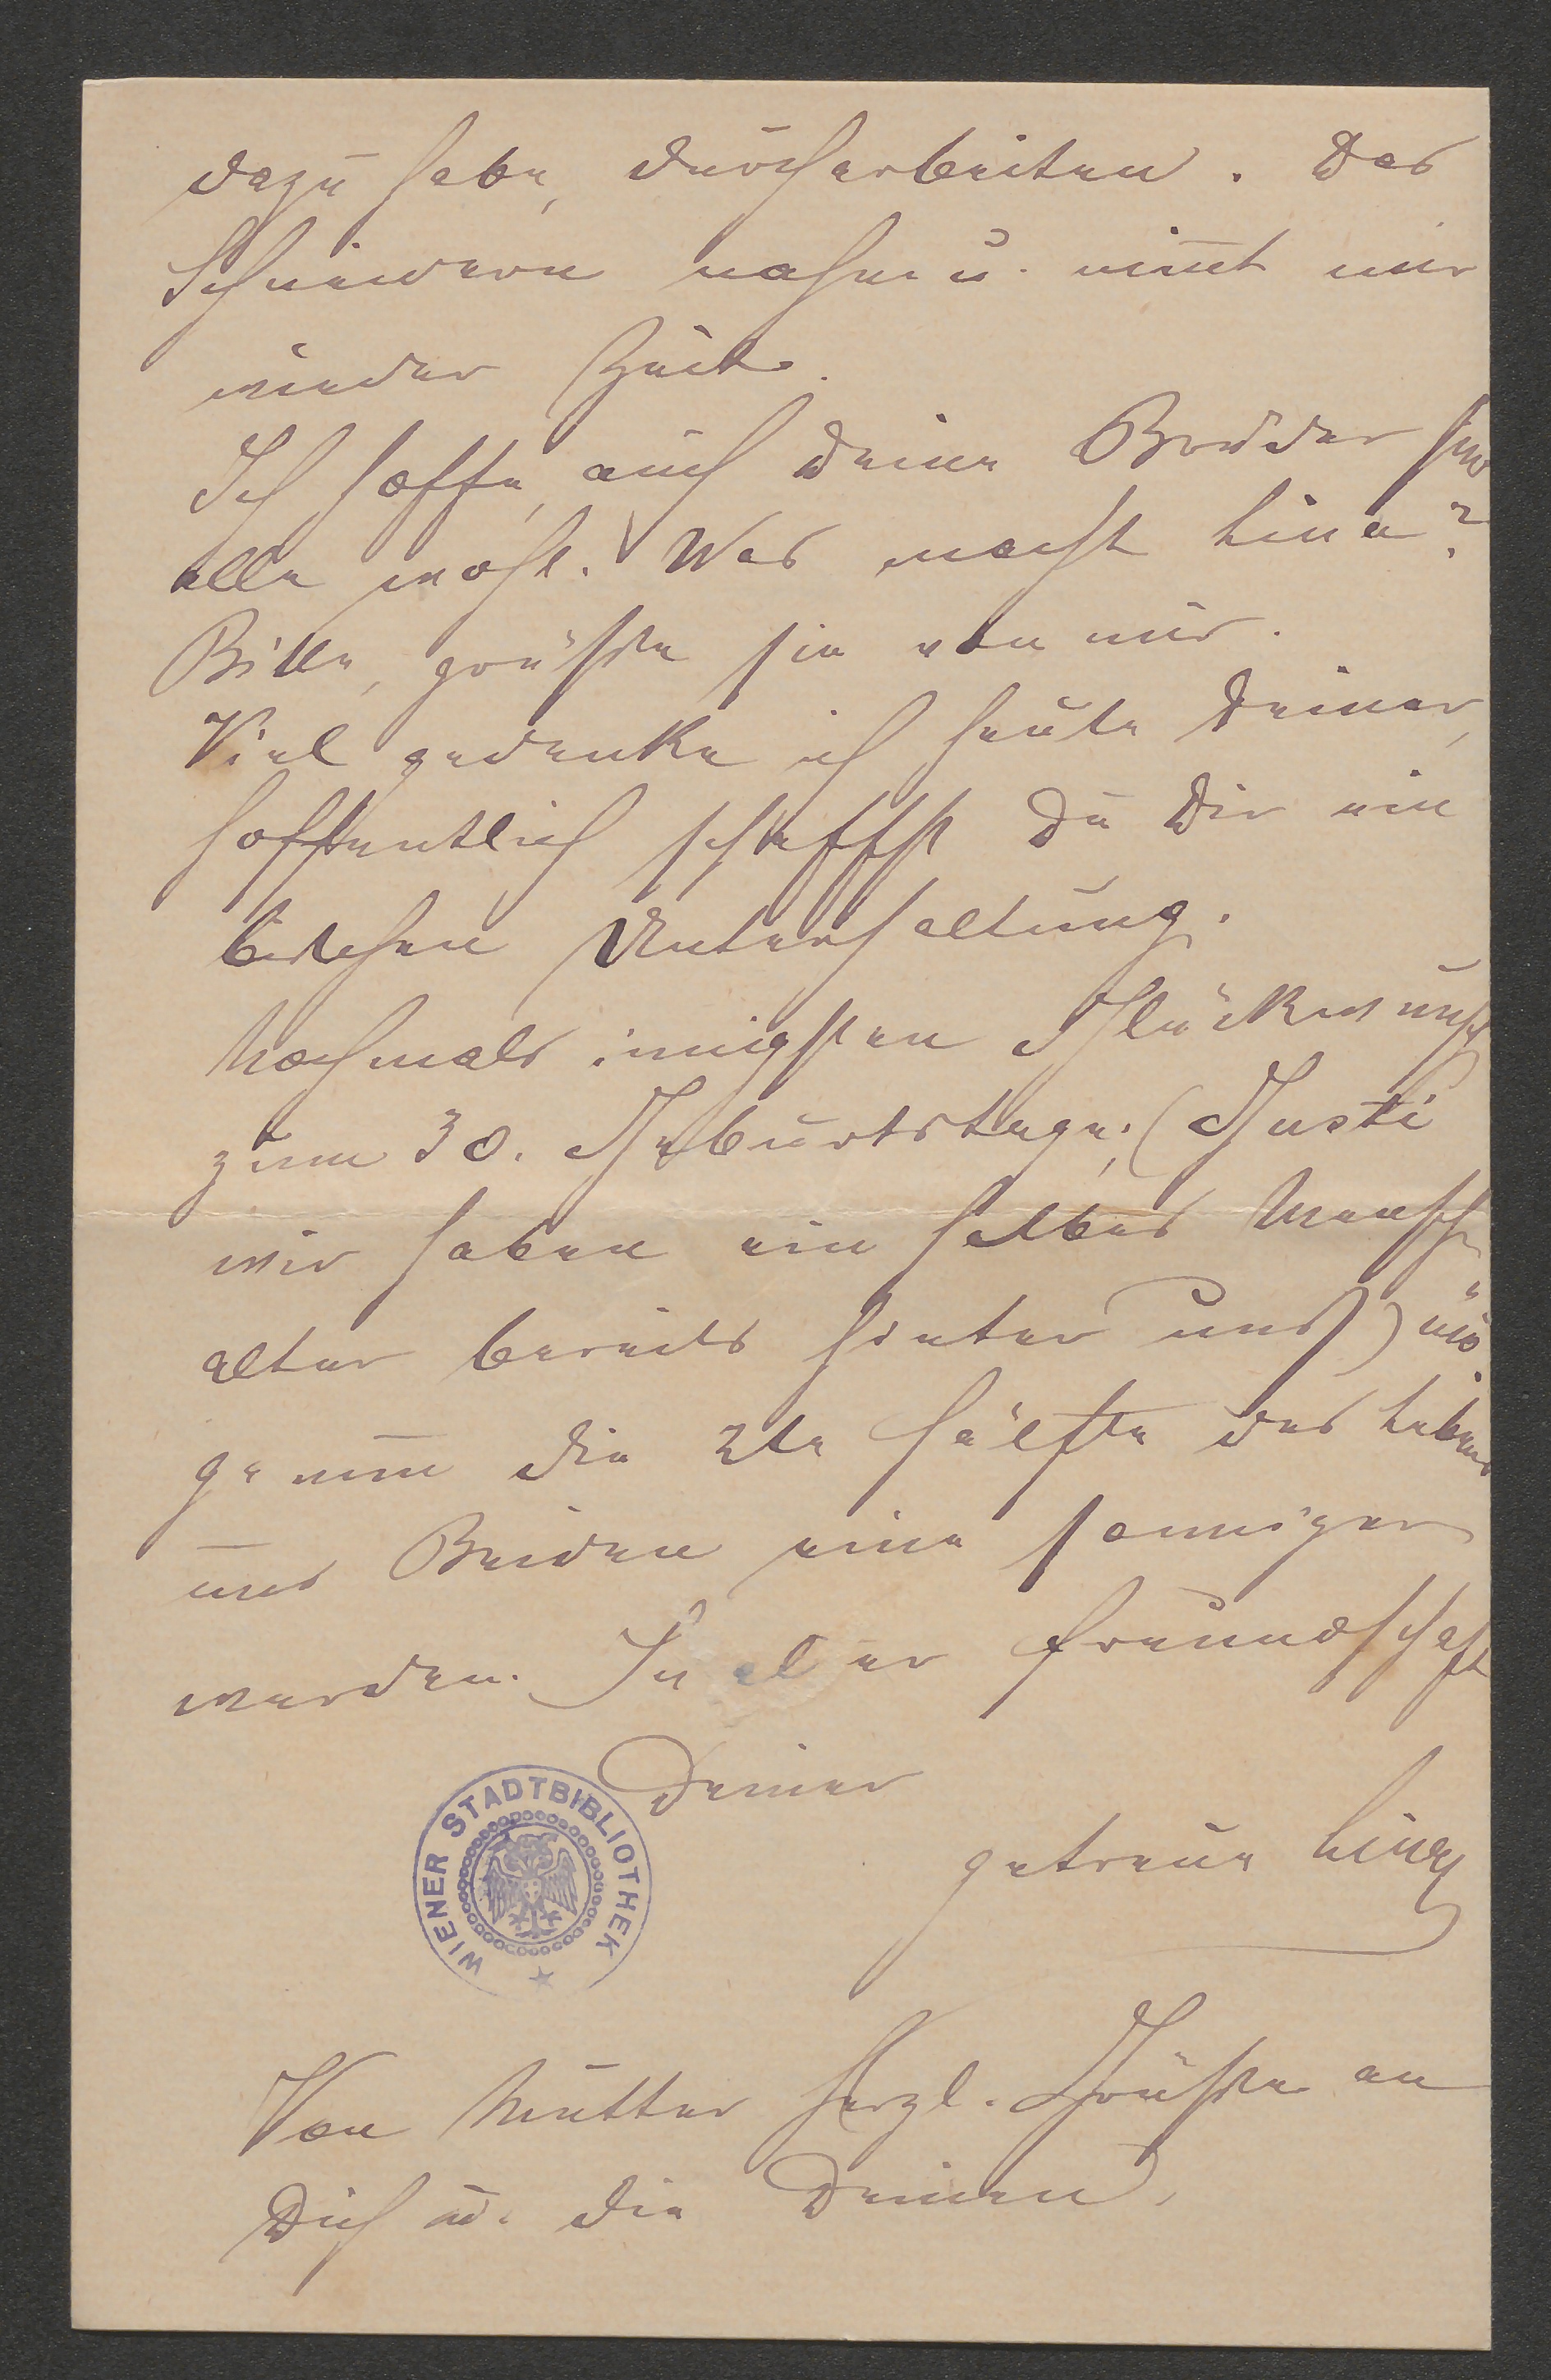 dazu habe, durcharbeiten. Das
Schneidern nahm u. nim̅t mir
wieder Zeit.
Ich hoffe, auch Deine Brüder sind
alle wohl. Was macht Lina?
Bitte, grüße sie von mir.
Viel gedenke ich heute Deiner,
hoffentlich schaffst Du Dir ein
bischen Unterhaltung.
Nochmals innigsten Glückwunsch
zum 30. Geburtstage; (Gusti
wir haben ein halbes Menschen
alter bereits hinter uns) mö
ge nun die 2te Hälfte des Lebens
uns Beiden eine sonniger
werden. In alter Freundschaft
Deiner
getreue Lina
WIENER STADTBIBLIOTHEK
Von Mutter herzl. Grüße an
Dich u. die Deinen.